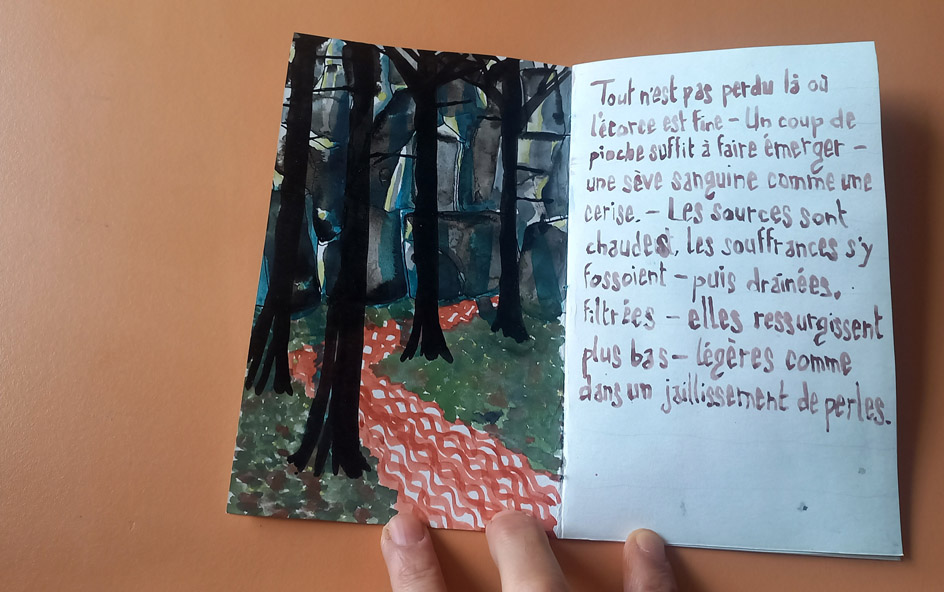 Tout n'est pas perdu là où
l'écorce est fine – Un coup de
pioche suffit à faire émerger –
une sève sanguine comme une
cerise. – Les sources sont
chaudes, les souffrances s'y
fossoient – puis drainées,
filtrées – elles ressurgissent
plus bas – légères comme
dans un jaillissement de perles.